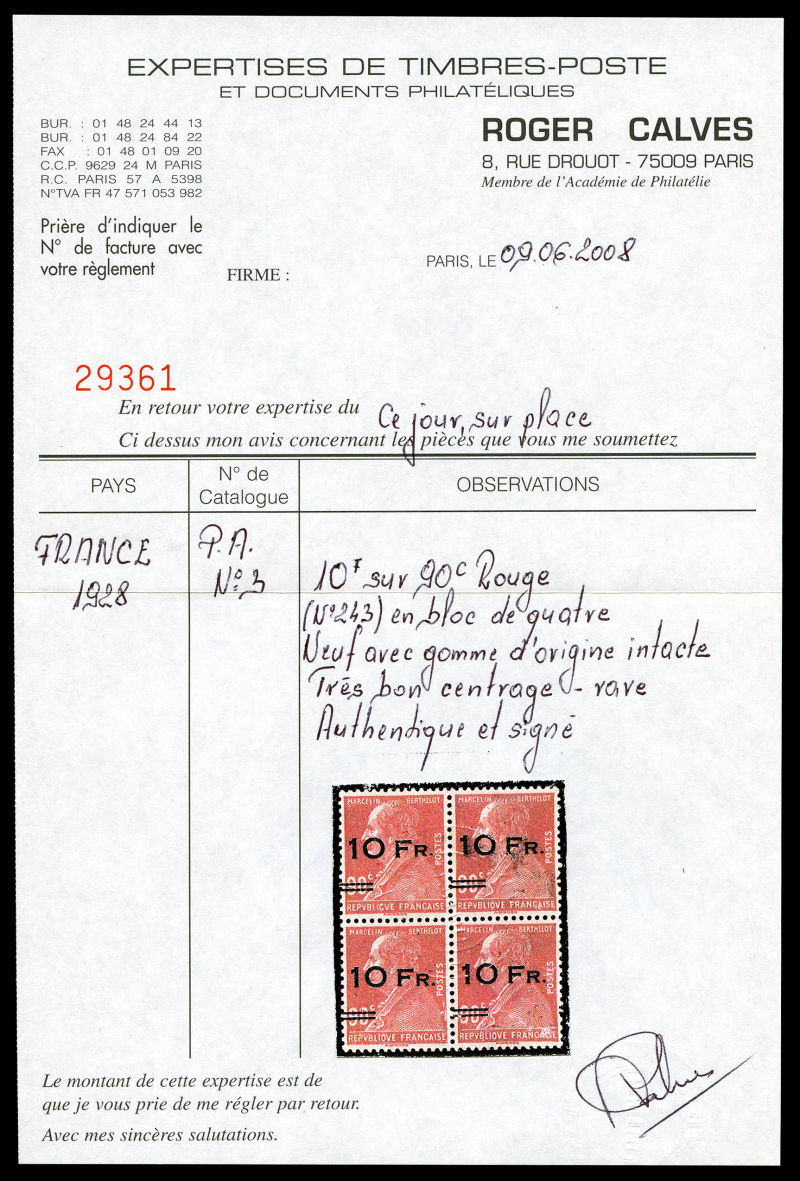 EXPERTISES DE TIMBRES-POSTE
ET DOCUMENTS PHILATÉLIQUES
BUR. : 01 48 24 44 13
BUR. : 01 48 24 84 22
FAX : 01 48 01 09 20
C.C.P. 9629 24 M PARIS
R.C. PARIS 57 A 5398
N°TVA FR 47 571 053 982
ROGER CALVES
8, RUE DROUOT - 75009 PARIS
Membre de l'Académie de Philatélie
Prière d'indiquer le
N° de facture avec
votre règlement
FIRME :
PARIS, LE 09.06.2008
29361
En retour votre expertise du Ce jour, sur place
Ci dessus mon avis concernant les pièces que vous me soumettez
PAYS
N° de
Catalogue
OBSERVATIONS
FRANCE
1928
P.A.
N°3
10F sur 90c Rouge
(N°243) en bloc de quatre
Neuf avec gomme d'origine intacte
Très bon centrage - rare
Authentique et signé
MARCELIN BERTHELOT
POSTES
10 FR.
90c
REPVBLIQVE FRANÇAISE
MARCELIN BERTHELOT
POSTES
10 FR.
90c
REPVBLIQVE FRANÇAISE
MARCELIN BERTHELOT
POSTES
10 FR.
90c
REPVBLIQVE FRANÇAISE
MARCELIN BERTHELOT
POSTES
10 FR.
90c
REPVBLIQVE FRANÇAISE
Le montant de cette expertise est de
que je vous prie de me régler par retour.
Avec mes sincères salutations.
Calves